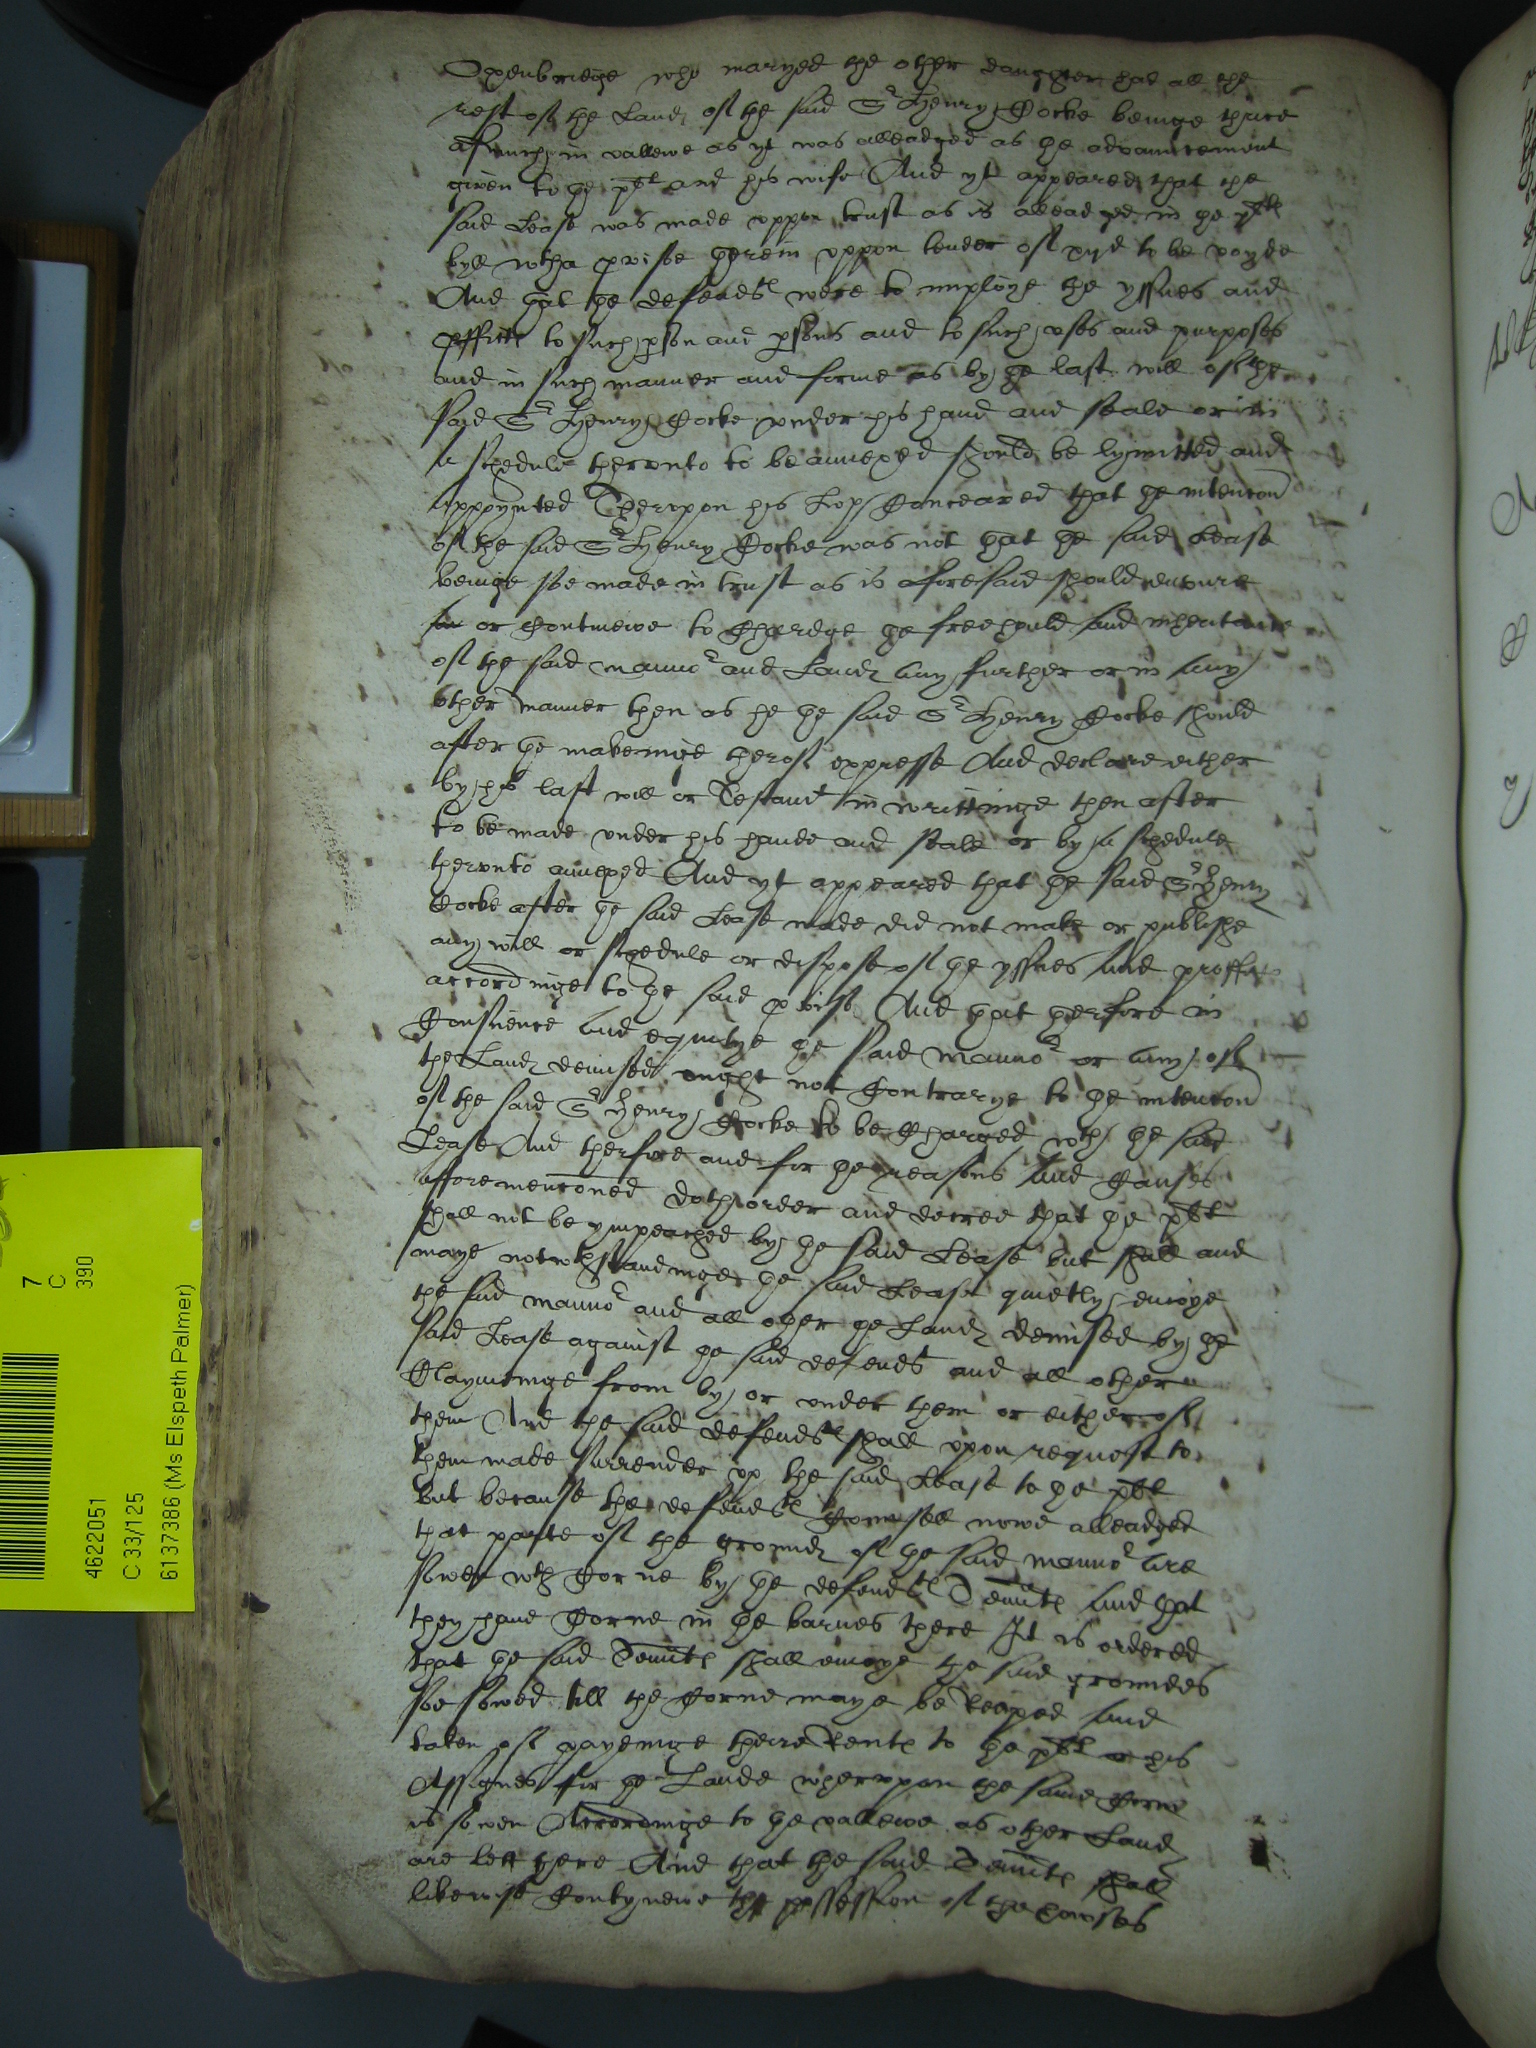 Oxenbriedge who maryed the other daughter had all the
rest of the Landℯ of the said Sr Henry Cocke beinge thrice
asmuch in vallewe as yt was alleadged as the advauncement
given to the plt and his wife And yt appeared that the
said Lease was made uppon trust as is alleadged in the plts
byll wth a proviso therein uppon tender of xijd to be voyde
And that the defendtℯ were to imploye the yssues and
proffittℯ to such person and persons and to such uses and purposes
and in such manner and forme as by the last will of the
said Sr Henry Cocke under his hand and seale or in
a schedule therunto to be annexed should be lymitted and
appoynted Therupon his Lop Conceaved that the intencon
of the said Sr Henry Cocke was not that the said Lease
beinge soe made in trust as is aforesaid should endure
or Contynewe to Chardge the freehould and inheritance
of the said mannor and Landℯ any further or in any
other manner then as he the said Sr Henry Cocke should
after the makeinge therof expresse And declare either
by his last will or Testamt in writtinge then after
to be made under his hande and seale or by a schedule
therunto annexed And yt appeared that the said Sr Henry
Cocke after the said Lease made did not make or publishe
any will or schedule or dispose of the yssues and proffitℯ
accordinge to the said proviso And that therfore in
Conscience and equitye the said mannor or any of
the Landℯ demised ought not Contrarye to the intencon
of the said Sr Henry Cocke to be Charged wth the said
Lease And therfore and for the reasons and Causes
afforemenconed doth order and decree that the plt
shall not be ympeached by the said Lease but shall and
maye notwthstandinge the said Lease quietly enioye
the said mannor and all other the Landℯ demised by the
said Lease against the said defendtℯ and all other
Claymeinge from by or under them or either of
them And the said defendtℯ shall upon request to
them made surrender up the said Lease to the plt
but because the defendtℯ Counsell nowe alleadged
that parte of the groundℯ of the said mannor are
sowen wth Corne by the defendtℯ Tenntℯ and that
they have Corne in the barnes there It is ordered
that the said Tenntℯ shall enioye the said groundes
soe sowed till the Corne maye be Reaped and
taken of payeinge there Rentℯ to the plt or his
Assignes for the Lande wheruppon the same Corne
is sowen Accordinge to the vallewe as other Landℯ
are lett there And that the said Tenntℯ shall
likewise Contynewe the possession of the howses
7
C
390
4622051
C 33/125
6137386 (Ms Elspeth Palmer)